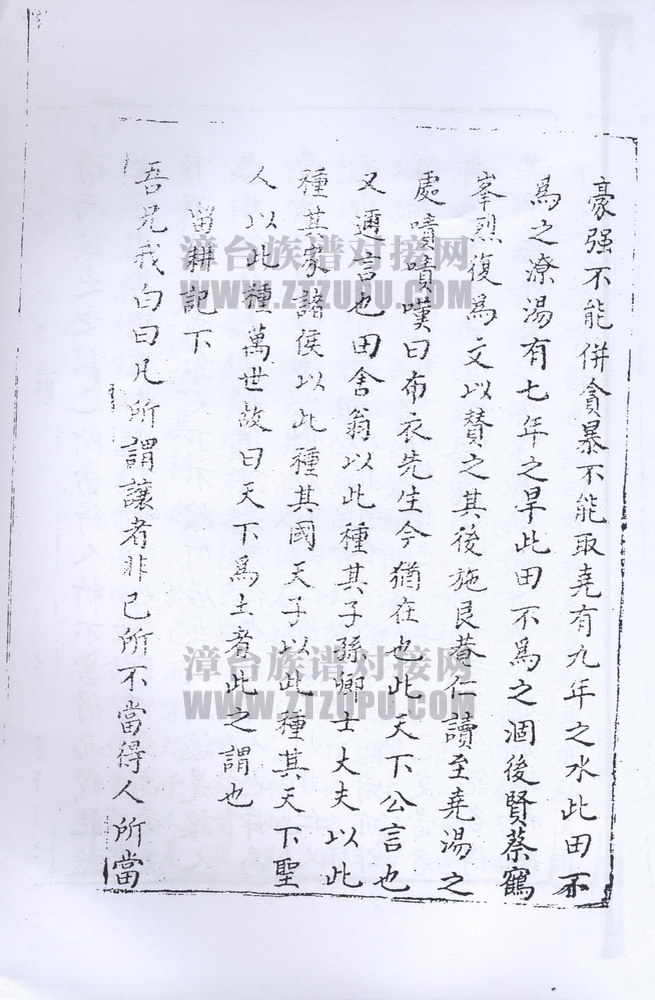 豪强不能併貪暴不能取堯有九年之水此田不
為之潦湯有七年之旱此田不為之涸後賢蔡鶴
峯烈復為文以賛之其後施艮菴仁讀至堯湯之
處嘖嘖嘆曰布衣先生今猶在也此天下公言也
又邇言也田舍翁以此種其子孫卿士大夫以此
種其家諸侯以此種其國天子以此種其天下聖
人以此種萬世故曰天下為土者此之謂也
留耕記下
吾兄我白曰凡所謂讓者非己所不當得人所當
漳台族谱对接网
WWW.ZTZUPU.COM
漳台族谱对接网
WWW.ZTZUPU.COM